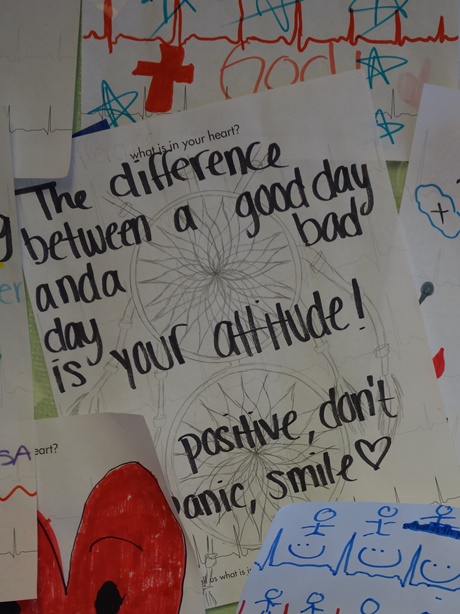 God!
what is in your heart?
The difference
between a good day
and a bad
day
is your attitude!
positive, don't
anic, smile
SA
eart?
er
us what is